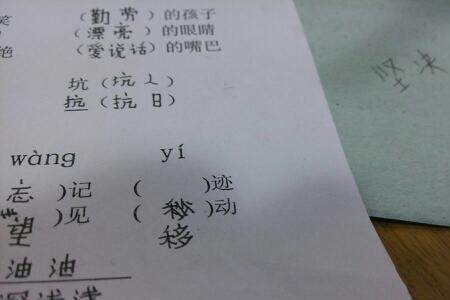 笑 （勤劳）的孩子
（漂亮）的眼睛
绝 （爱说话）的嘴巴
坑（坑人）
抗（抗日）
坚决
wàng yí
忘 ）记 （ ）迹
望 ）见 （ ）动
移
油油